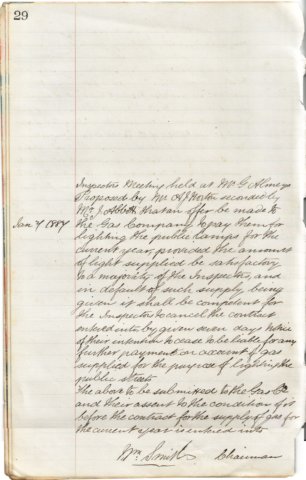 29
Inspectors Meeting held at Mr G Almey's
Proposed by Mr A J Horton seconded by
Jan 7 1887
Mr J Abbott that an offer be made to
the Gas Company to pay them for
lighting the public Lamps for the
current year, provided the amount
of light supplied be satisfactory
to a majority of the Inspectors, and
in default of such supply being
given it shall be competent for
the Inspectors to cancel the contract
entered into by given seven days notice
of their intention to cease to be liable for any
further payment on account of gas
supplied for the purpose of lighting the
public streets
The above to be submitted to the Gas Co
and their assent to the condition
before the contract for the supply of gas for
the current year is entered into
Wm Smith Chairman